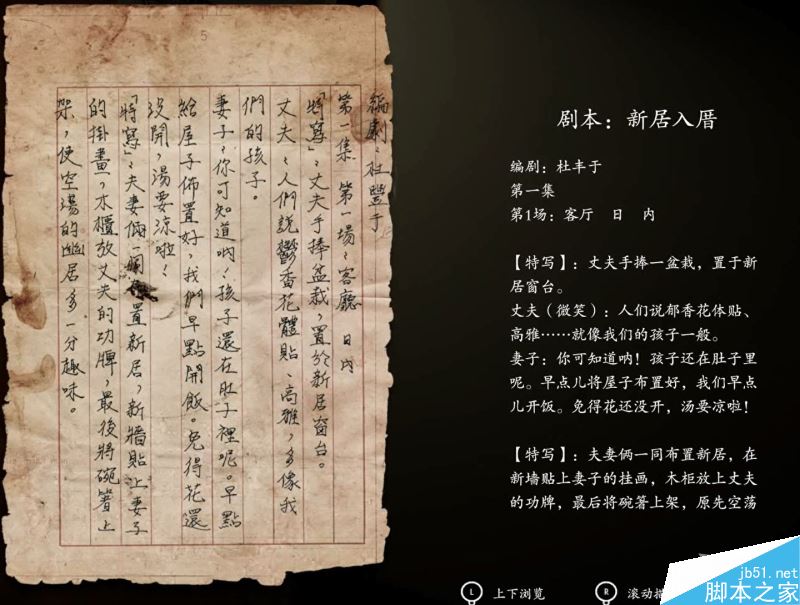 5
編劇：杜豐于
第一集 第一場：客廳 日 內
「特寫」：丈夫手捧盆栽，置於新居窗台。
丈夫：人們說鬱香花體貼、高雅，多像我
們的孩子。
妻子：你可知道吶！孩子還在肚子裡呢。早點
給屋子佈置好，我們早點開飯。免得花還
沒開，湯要涼啦！
「特寫」：夫妻倆一同佈置新居，新牆貼上妻子
的掛畫，木櫃放丈夫的功牌，最後將碗箸上
架，使空蕩的幽居多一分趣味。
剧本：新居入厝
编剧：杜丰于
第一集
第1场：客厅 日 内
【特写】：丈夫手捧一盆栽，置于新
居窗台。
丈夫（微笑）：人们说郁香花体贴、
高雅……就像我们的孩子一般。
妻子：你可知道呐！孩子还在肚子里
呢。早点儿将屋子布置好，我们早点
儿开饭。免得花还没开，汤要凉啦！
【特写】：夫妻俩一同布置新居，在
新墙贴上妻子的挂画，木柜放上丈夫
的功牌，最后将碗箸上架，原先空荡
L 上下浏览
R 滚动
jb51.net
脚本之家